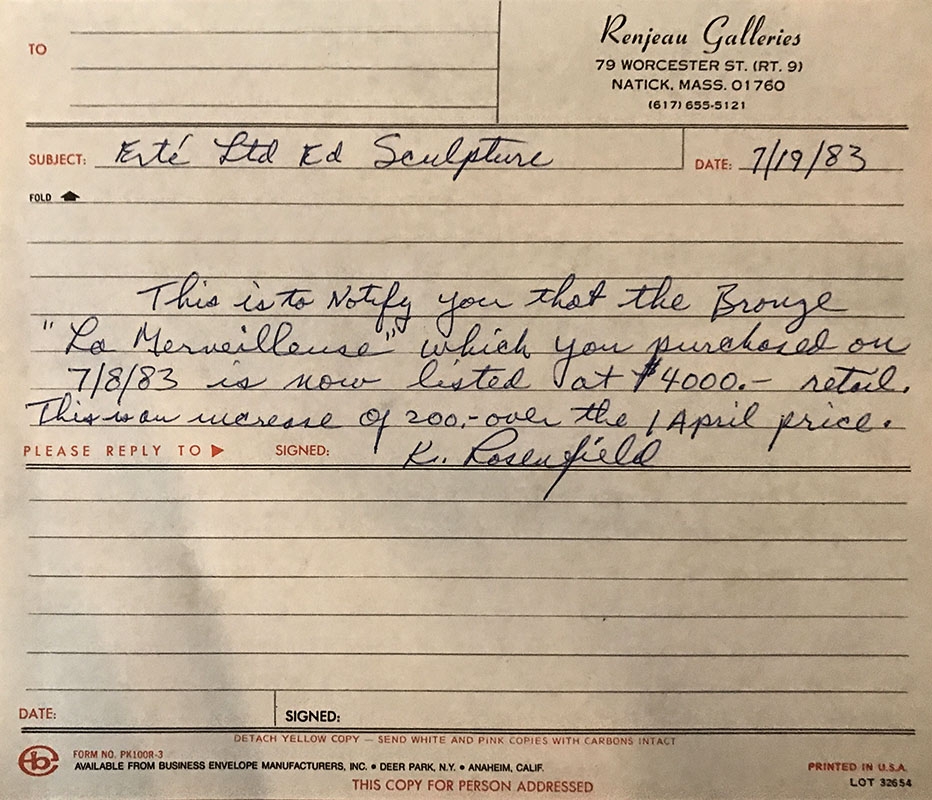 Renjeau Galleries
79 WORCESTER ST. (RT. 9)
NATICK, MASS. 01760
(617) 655-5121
TO
SUBJECT: Erté Ltd Ed Sculpture
DATE: 7/19/83
FOLD
This is to Notify you that the Bronze
"La Merveilleuse" which you purchased on
7/8/83 is now listed at $4000.- retail.
This is an increase of 200.- over the 1 April price.
PLEASE REPLY TO ▶ SIGNED: K. Rosenfield
DATE: SIGNED:
DETACH YELLOW COPY — SEND WHITE AND PINK COPIES WITH CARBONS INTACT
FORM NO. PK100R-3
AVAILABLE FROM BUSINESS ENVELOPE MANUFACTURERS, INC. • DEER PARK, N.Y. • ANAHEIM, CALIF.
THIS COPY FOR PERSON ADDRESSED
PRINTED IN U.S.A.
LOT 32654